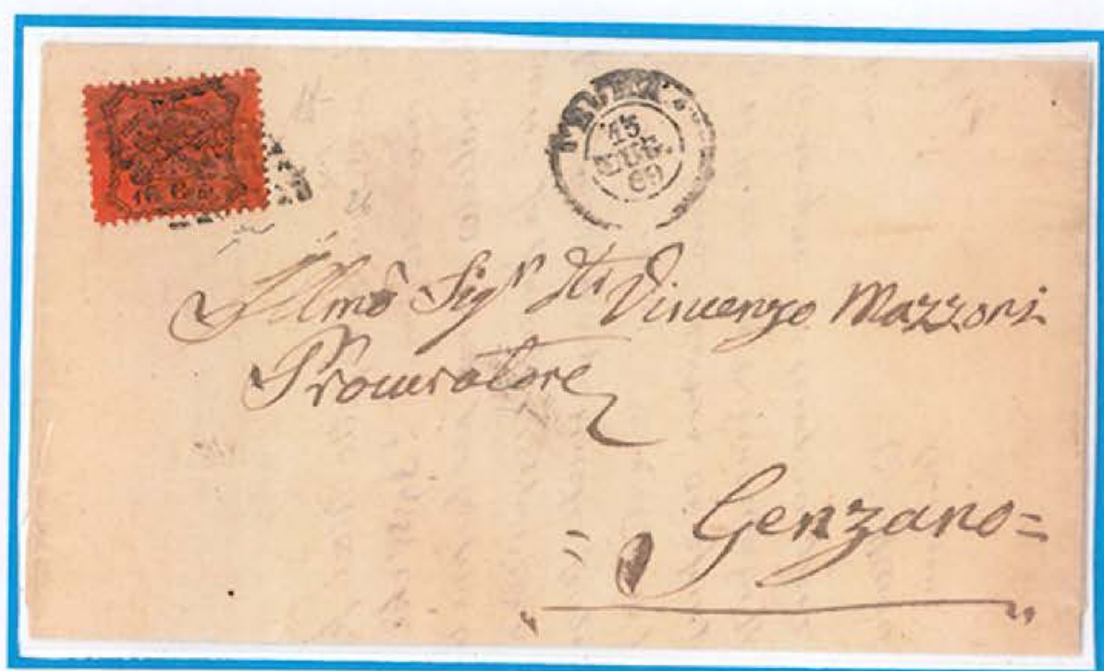 10 Cent.
15
LUG.
69
Illmo Sigr
Vincenzo Mazzoni
Procuratore
Genzano